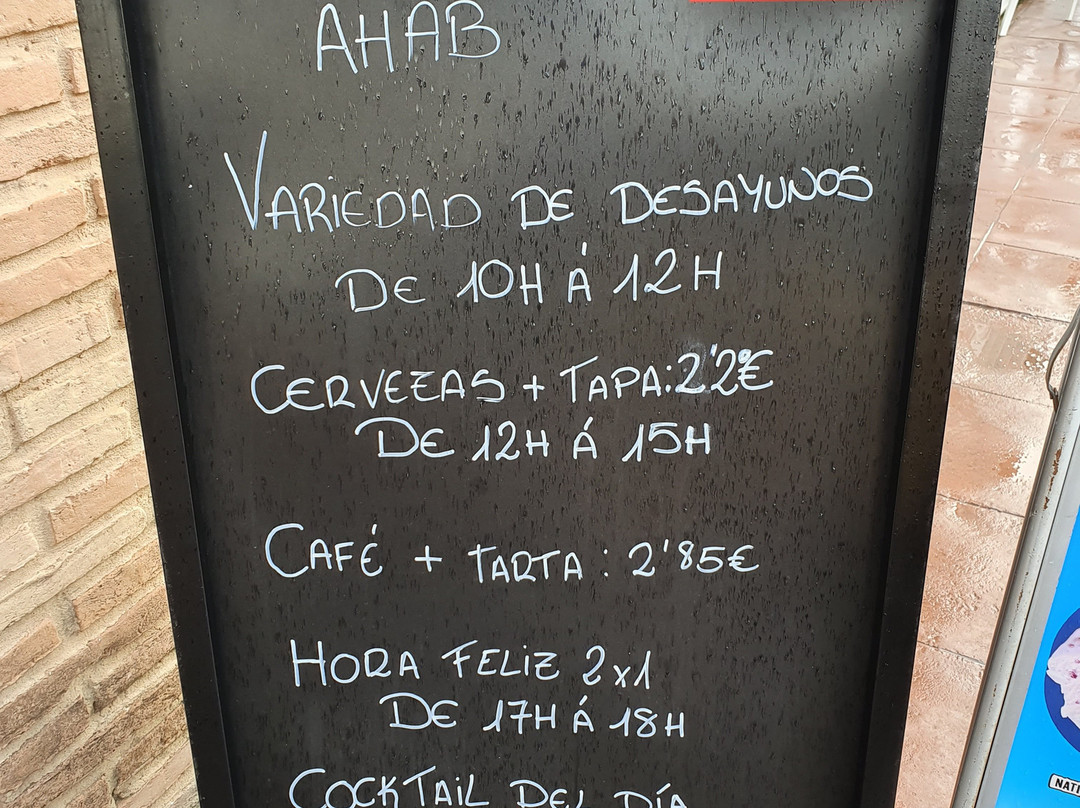 AHAB
VARIEDAD DE DESAYUNOS
DE 10H Á 12H
CERVEZAS + TAPA: 2'20€
DE 12H Á 15H
CAFÉ + TARTA : 2'85€
HORA FELIZ 2x1
DE 17H Á 18H
COCKTAIL DEL DÍA